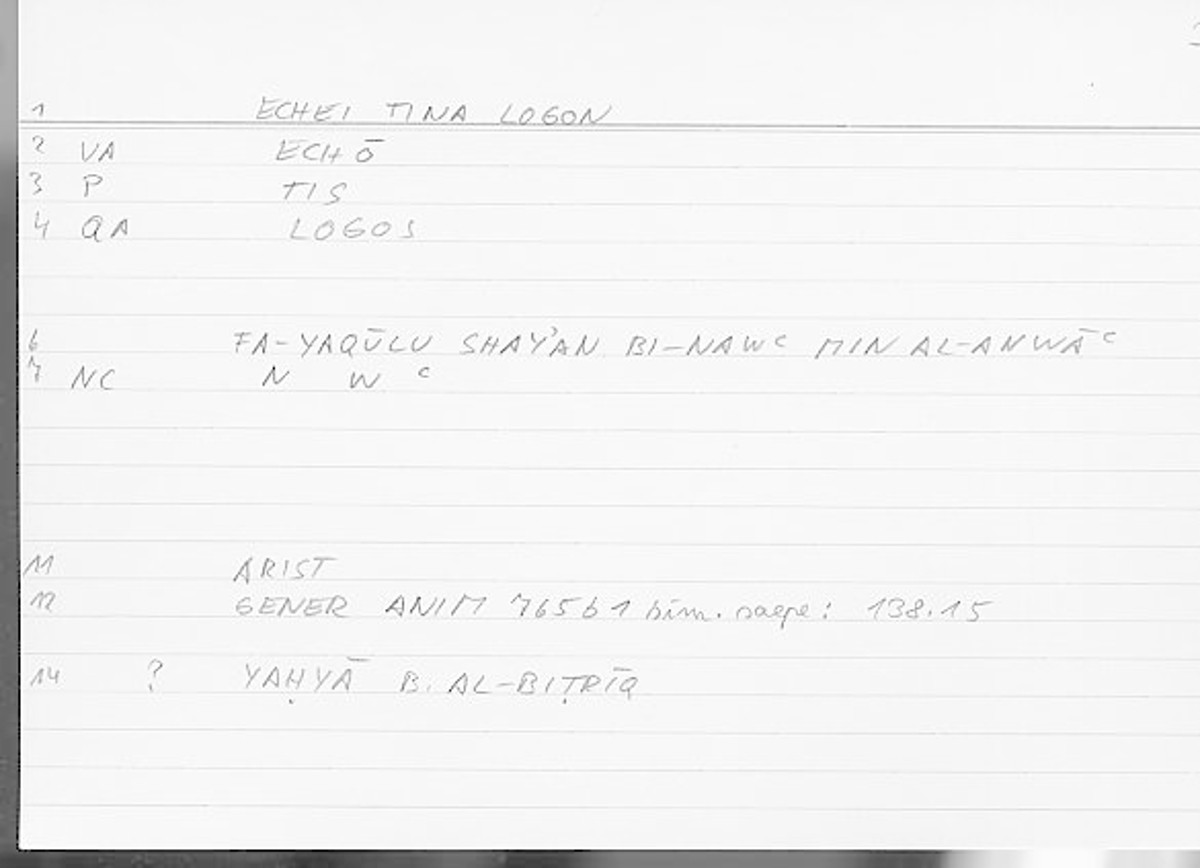 1 ECHEI TINA LOGON
2 VA ECHŌ
3 P TIS
4 QA LOGOS
6 FA-YAQŪLU SHAY'AN BI-NAWᶜ MIN AL-ANWĀᶜ
7 NC N W ᶜ
11 ARIST
12 GENER ANIM 765b1 sim. saepe: 138.15
14 ? YAḤYĀ B. AL-BIṬRĪQ